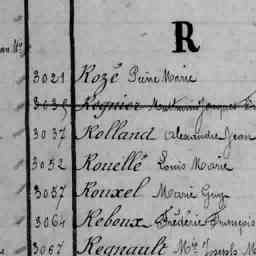 R
3021 Rozé Pierre Marie
3035 Regnier Mathurin Jacques
3037 Rolland Alexandre Jean
3052 Rouellé Louis Marie
3057 Rouxel Marie Guy
3064 Reboux Frédéric François
3067 Regnault Mie Joseph M